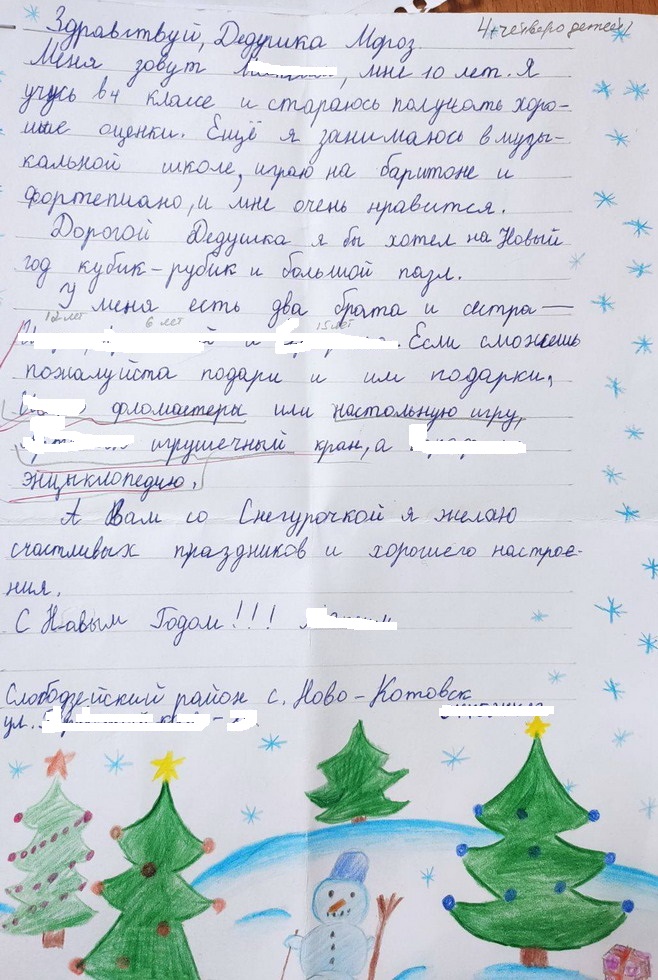 4 четверо детей
Здравствуй, Дедушка Мороз
Меня зовут , мне 10 лет. Я
учусь в 4 классе и стараюсь получать хоро-
шие оценки. Ещё я занимаюсь в музы-
кальной школе, играю на баритоне и
фортепиано, и мне очень нравится.
Дорогой Дедушка я бы хотел на Новый
год кубик-рубик и большой пазл.
У меня есть два брата и сестра —
12 лет 6 лет 15 лет
и . Если сможешь
пожалуйста подари и им подарки,
фломастеры или настольную игру,
игрушечный кран, а
энцыклопедию.
А Вам со Снегурочкой я желаю
счастливых праздников и хорошего настрое-
ния.
С Новым Годом!!!
Слободзейский район с. Ново-Котовск
ул.